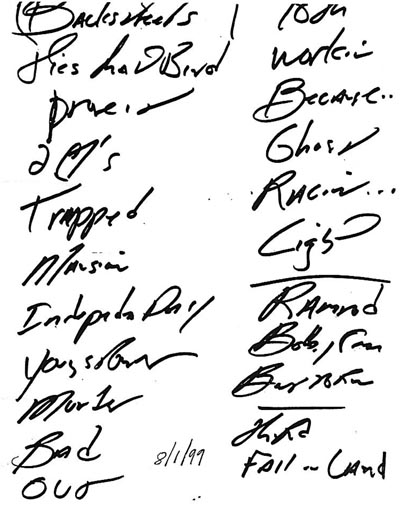 Backstreets
Prove it
2 H's
Trapped
Mansion
Independ Day
Youngstown
Murder
Bad
Out
8/1/99
10th
Workin
Because..
Ghost
Racin...
Light
Ramrod
Bobby Jean
Born to Run
Fall – Land